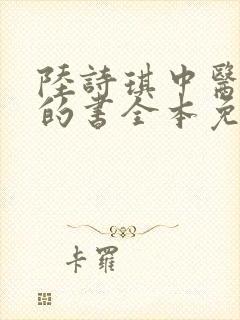 陸詩琪中醫
的書全本免
卡羅